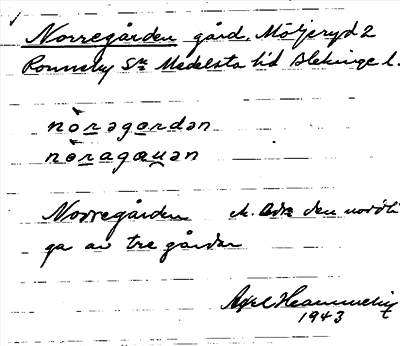 Norregården gård, Möljeryd 2
Ronneby Sn Medelsta hd Blekinge l.
nòrəgɑrdən
nòragɑuən
Norregården den nordli
ga av tre gårdar
Axel
1943